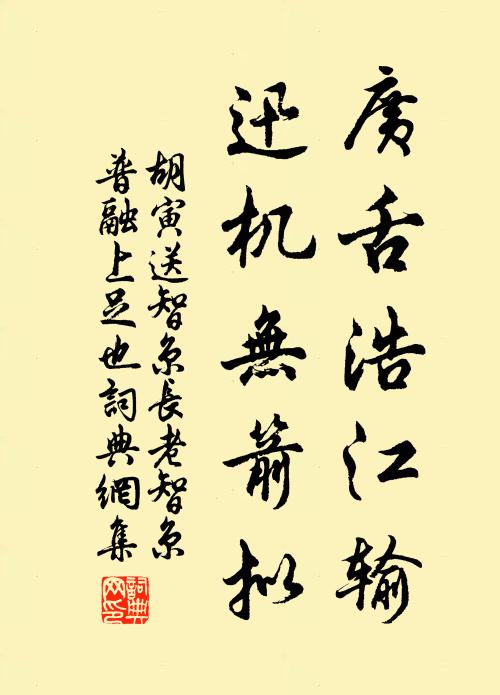 廣舌浩江输
迅机無箭拟
胡寅送智京長老智京
普融上足也詞典網集
詞典网印